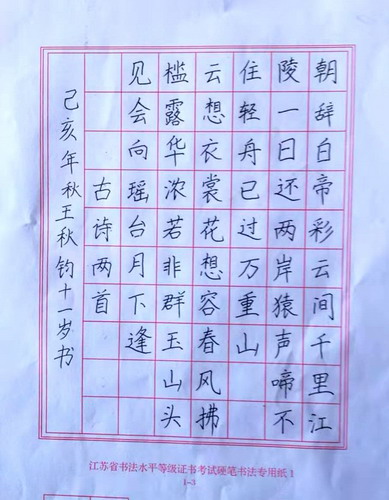 朝辞白帝彩云间千里江
陵一日还两岸猿声啼不
住轻舟已过万重山
云想衣裳花想容春风拂
槛露华浓若非群玉山头
见会向瑶台月下逢
古诗两首
己亥年秋王秋钧十一岁书
江苏省书法水平等级证书考试硬笔书法专用纸1
1-3